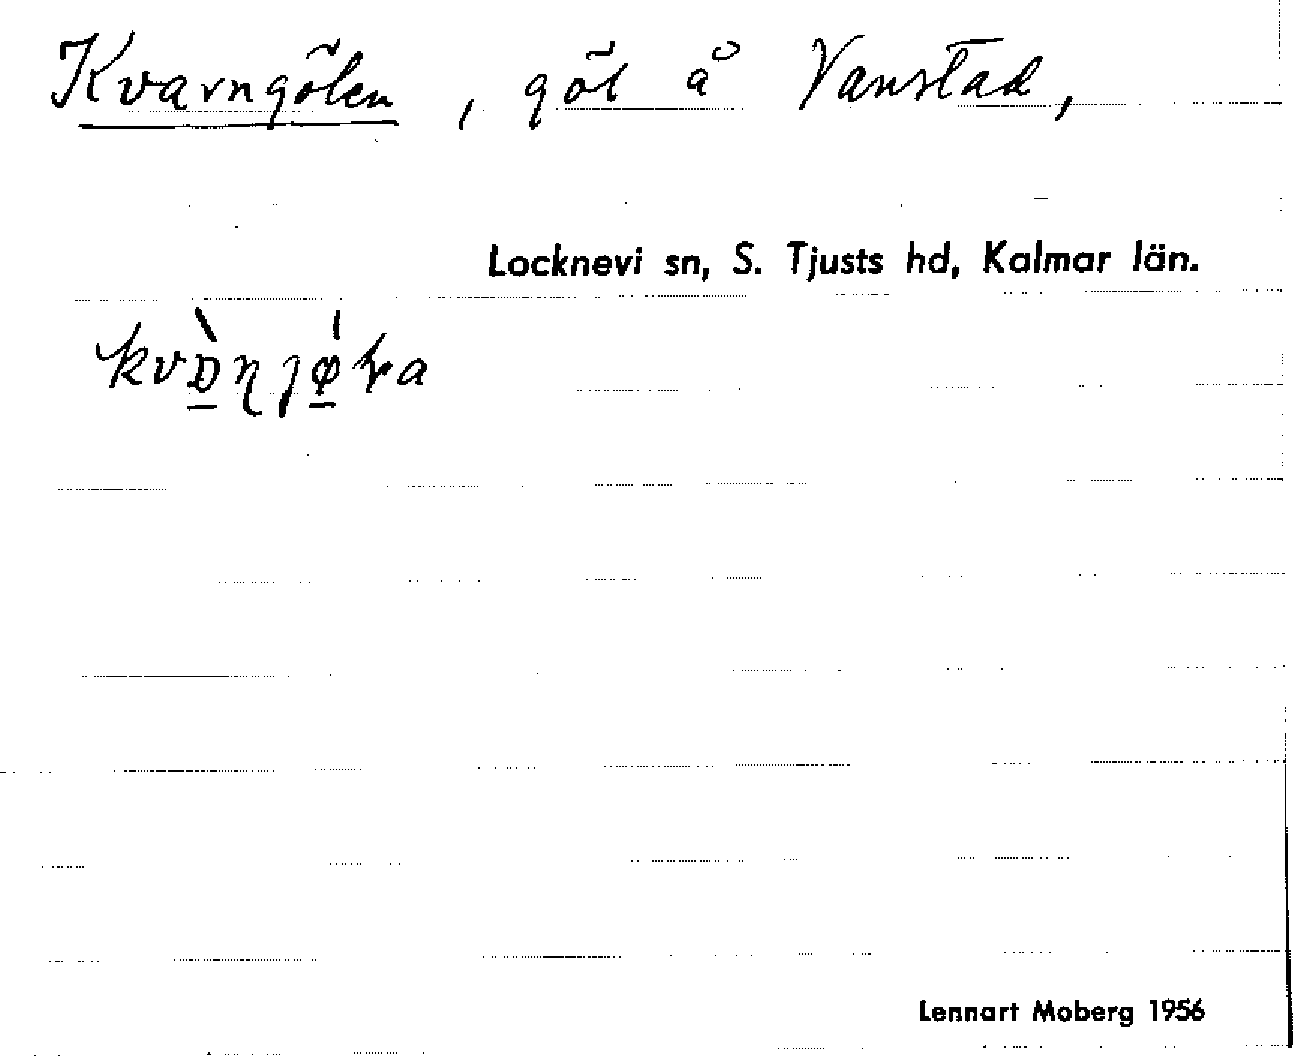 Kvarngölen, göl å Vanstad,
Locknevi sn, S. Tjusts hd, Kalmar län.
Lennart Moberg 1956